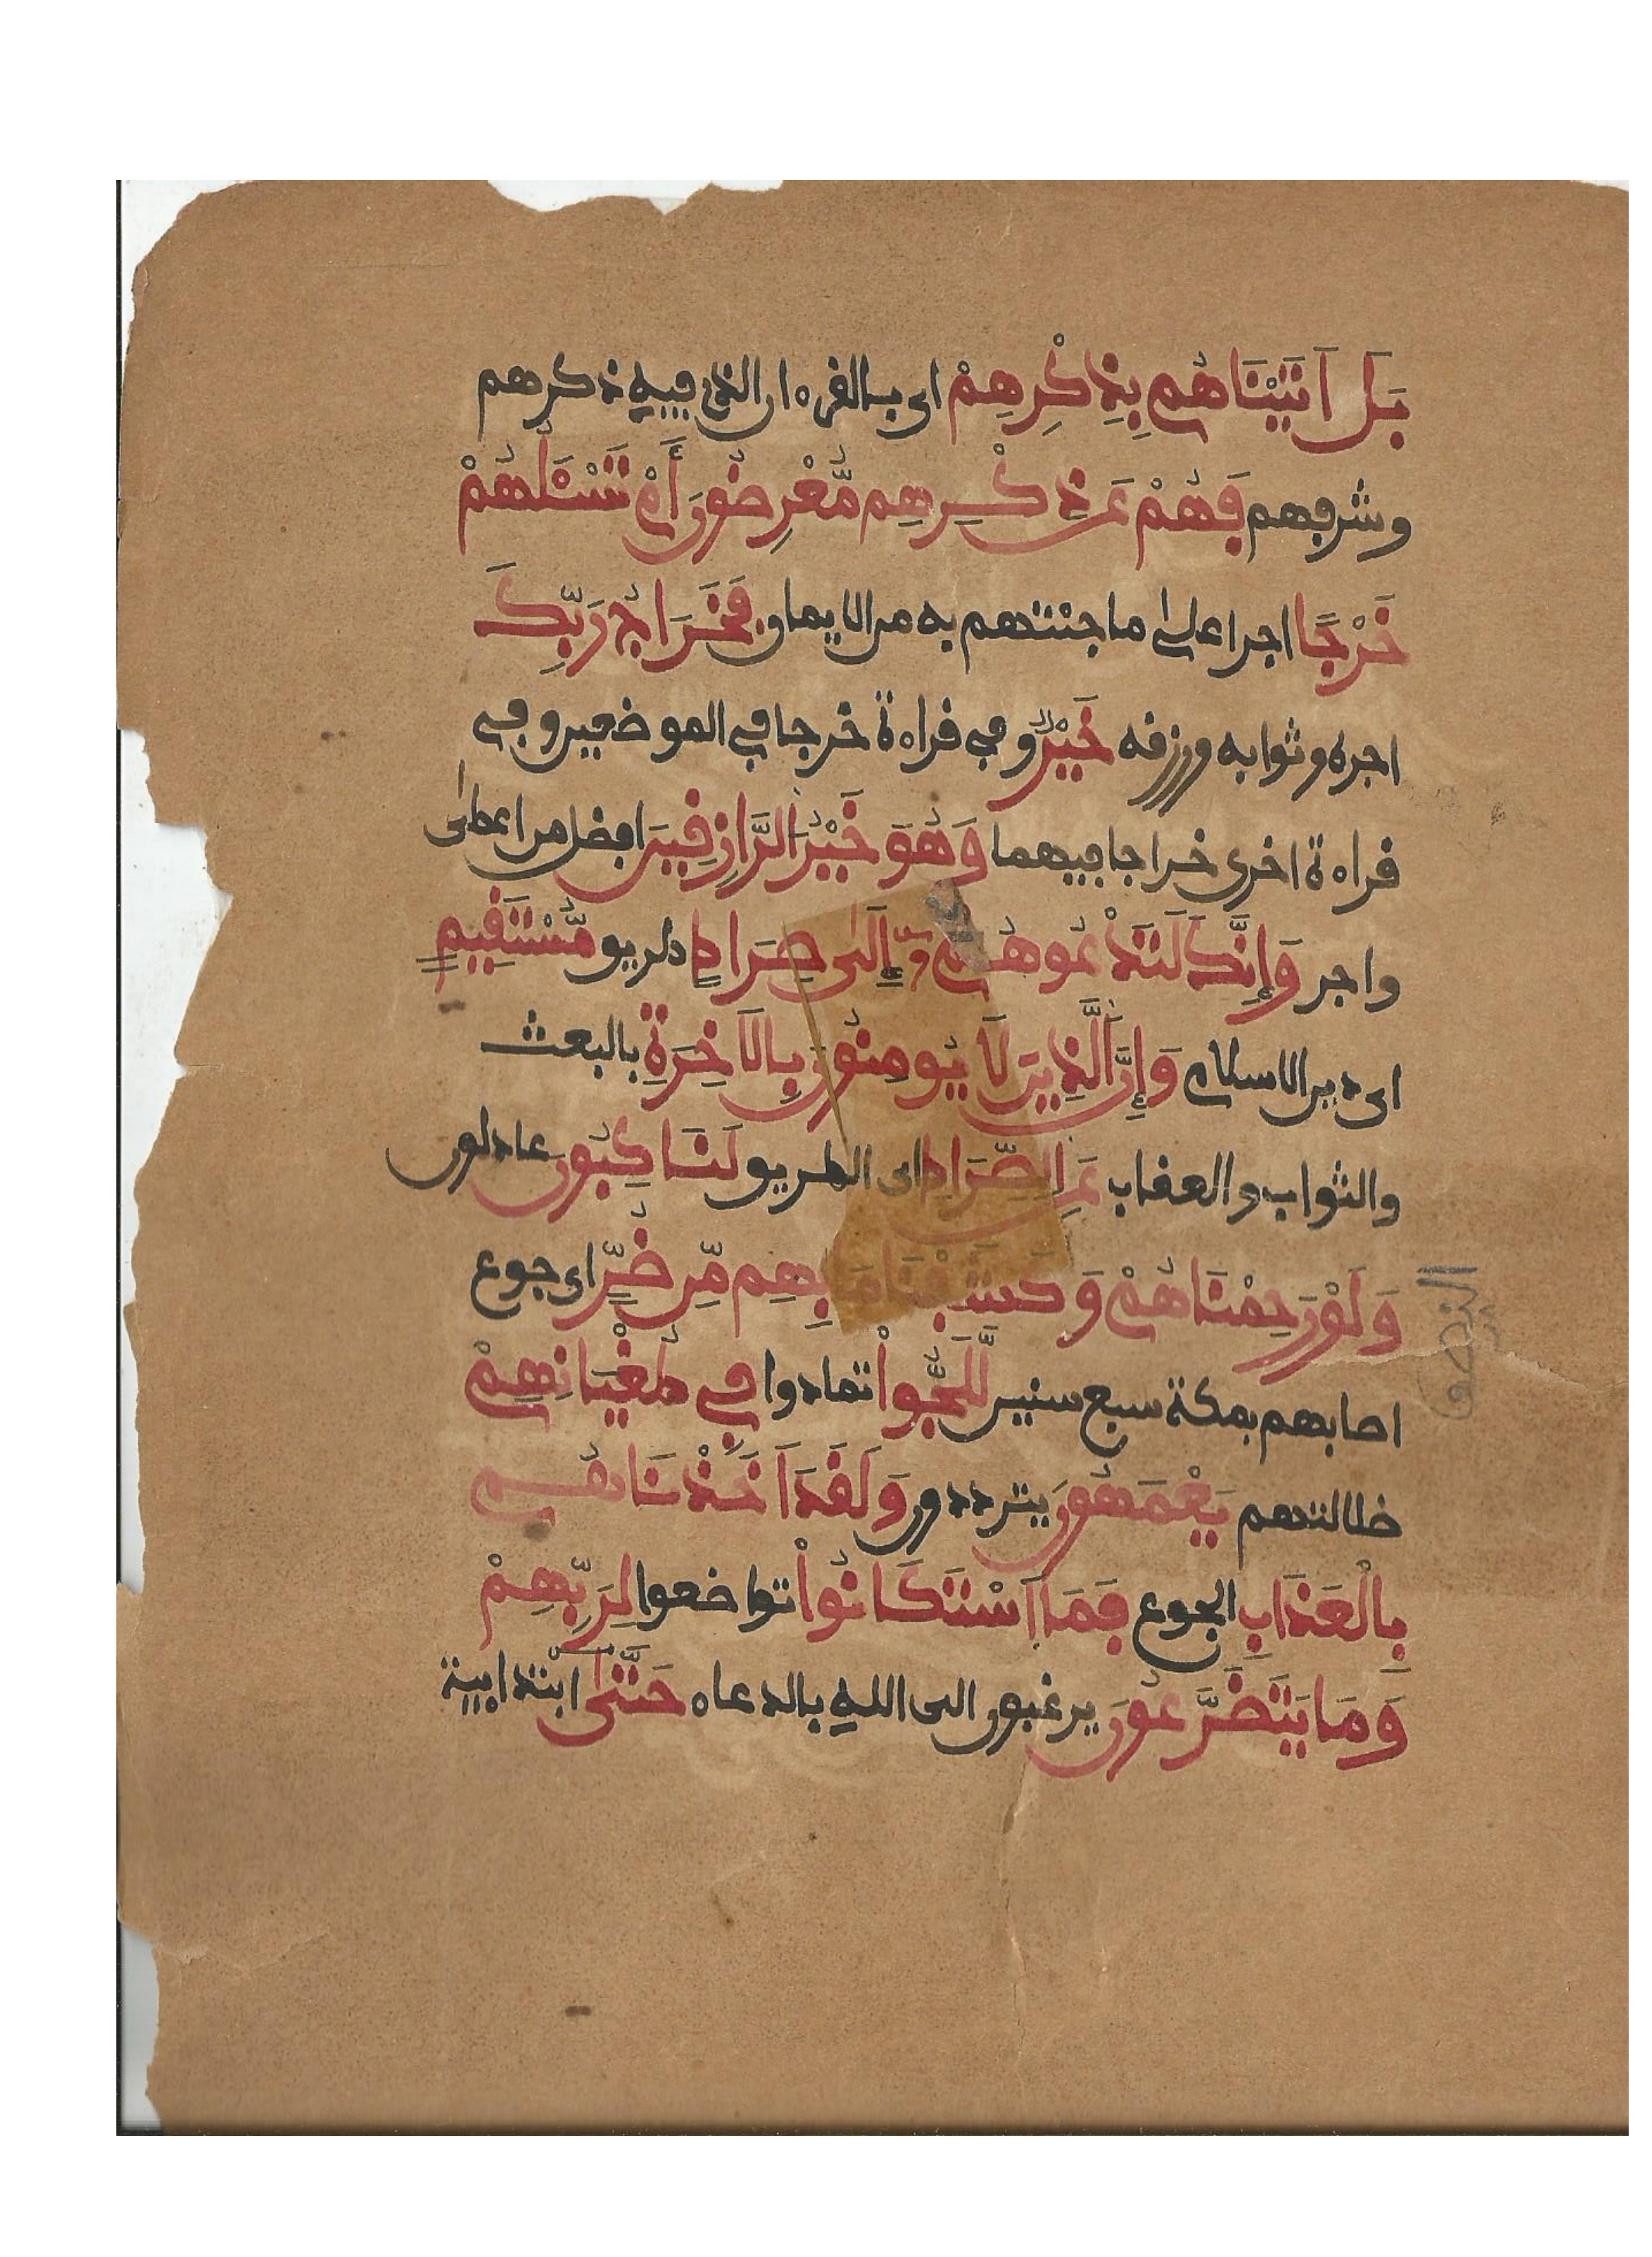 بَلَ اَتَيْنَاهُم بِذِكْرِهِمْ اى بالقرءان الذى فيه ذكرهم
وشرفهم فَهُمْ عَن ذِكْرِهِم مُّعْرِضُونَ أَمْ تَسْـَٔلُهُمْ
خَرْجًا اجرا على ما جئتهم به من الايمان فَخَرَاجُ رَبِّكَ
اجره وثوابه ورزقه خَيْرٌ وفى قراءة خرجا فى الموضعين وفى
قراءة اخرى خراجا فيهما وَهُوَ خَيْرُ الرَّازِقِينَ افضل من اعطى
واجر وَإِنَّكَ لَتَدْعُوهُمُ إِلَى صِرَاطٍ طريق مُّسْتَقِيمٍ
اى دين الاسلام وَإِنَّ الَّذِينَ لَا يُومِنُونَ بِالَاخِرَةِ بالبعث
والثواب والعقاب عَنِ الصِّرَاطِ اى الطريق لَنَاكِبُونَ عادلون
وَلَوْ رَحِمْنَاهُمْ وَكَشَفْنَا مَا بِهِم مِّن ضُرٍّ اى جوع
اصابهم بمكة سبع سنين لَّلَجُّواْ تمادوا فِى طُغْيَانِهِمْ
ضلالتهم يَعْمَهُونَ يترددون وَلَقَدَ اَخَذْنَاهُم
بِالْعَذَابِ الجوع فَمَا اَسْتَكَانُواْ تواضعوا لِرَبِّهِمْ
وَمَا يَتَضَرَّعُونَ يرغبون الى الله بالدعاء حَتَّى ابتدائية
النصف